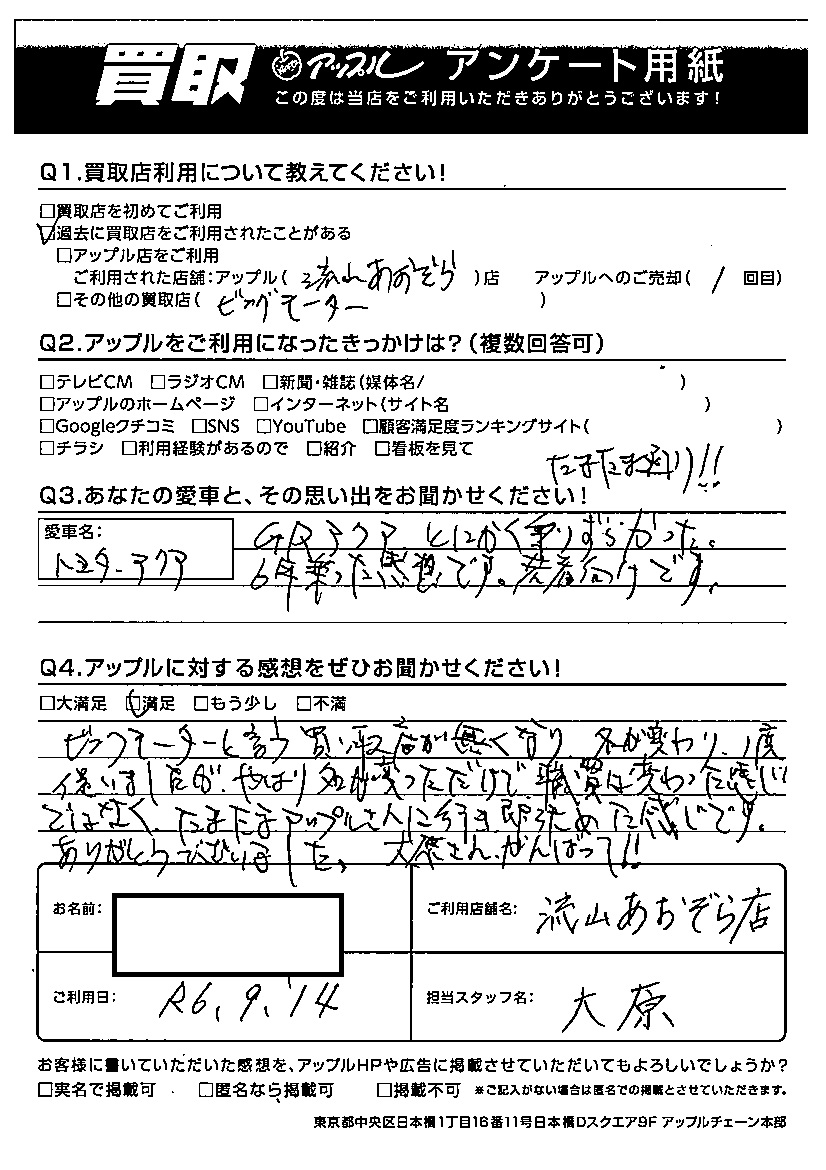 買取 アップル アンケート用紙
この度は当店をご利用いただきありがとうございます!
Q1.買取店利用について教えてください!
□買取店を初めてご利用
☑過去に買取店をご利用されたことがある
□アップル店をご利用
ご利用された店舗:アップル( 流山あおぞら )店 アップルへのご売却( 1 回目)
□その他の買取店( ビッグモーター )
Q2.アップルをご利用になったきっかけは?(複数回答可)
□テレビCM □ラジオCM □新聞・雑誌(媒体名/ )
□アップルのホームページ □インターネット(サイト名 )
□Googleクチコミ □SNS □YouTube □顧客満足度ランキングサイト( )
□チラシ □利用経験があるので □紹介 □看板を見て
たまたま通り!!
Q3.あなたの愛車と、その思い出をお聞かせください!
愛車名:
トヨタ-アクア
GRアクア とにかく乗りずらかった。
6年乗った感想です。若者向けです。
Q4.アップルに対する感想をぜひお聞かせください!
□大満足 ☑満足 □もう少し □不満
ビックモーターと言う買い取店が無くなり、名が変わり、1度
使いましたが、やはり名が変っただけで、職員は変わった感じ
ではなく、たまたまアップルさんに行き即決めた感じです。
ありがとうございました。大原さん、がんばって!!
お名前:
ご利用店舗名: 流山あおぞら店
ご利用日: R6.9.14
担当スタッフ名: 大原
お客様に書いていただいた感想を、アップルHPや広告に掲載させていただいてもよろしいでしょうか?
□実名で掲載可 □匿名なら掲載可 □掲載不可 ※ご記入がない場合は匿名での掲載とさせていただきます。
東京都中央区日本橋1丁目16番11号日本橋Dスクエア9F アップルチェーン本部